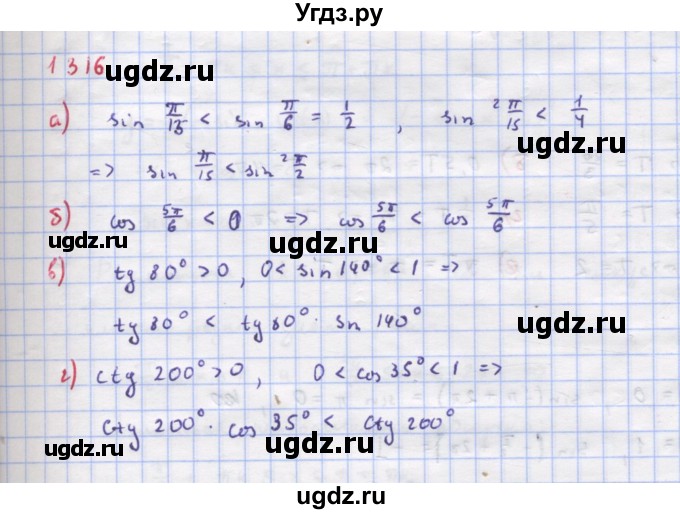 Угдз.ру
1316
ugdz.ru ugdz.ru
а) sin π/15 < sin π/6 = 1/2 , sin² π/15 < 1/4
ugdz.ru
=> sin π/15 < sin² π/2
ugdz.ru
б) cos 5π/6 < 0 => cos 5π/6 < cos 5π/6
ugdz.ru
в) tg 80° > 0, 0 < sin 140° < 1 =>
ugdz.ru
tg 80° < tg 80° · sin 140°
ugdz.ru
г) ctg 200° > 0, 0 < cos 35° < 1 =>
ugdz.ru
ctg 200° · cos 35° < ctg 200°
ugdz.ru ugdz.ru
ugdz.ru